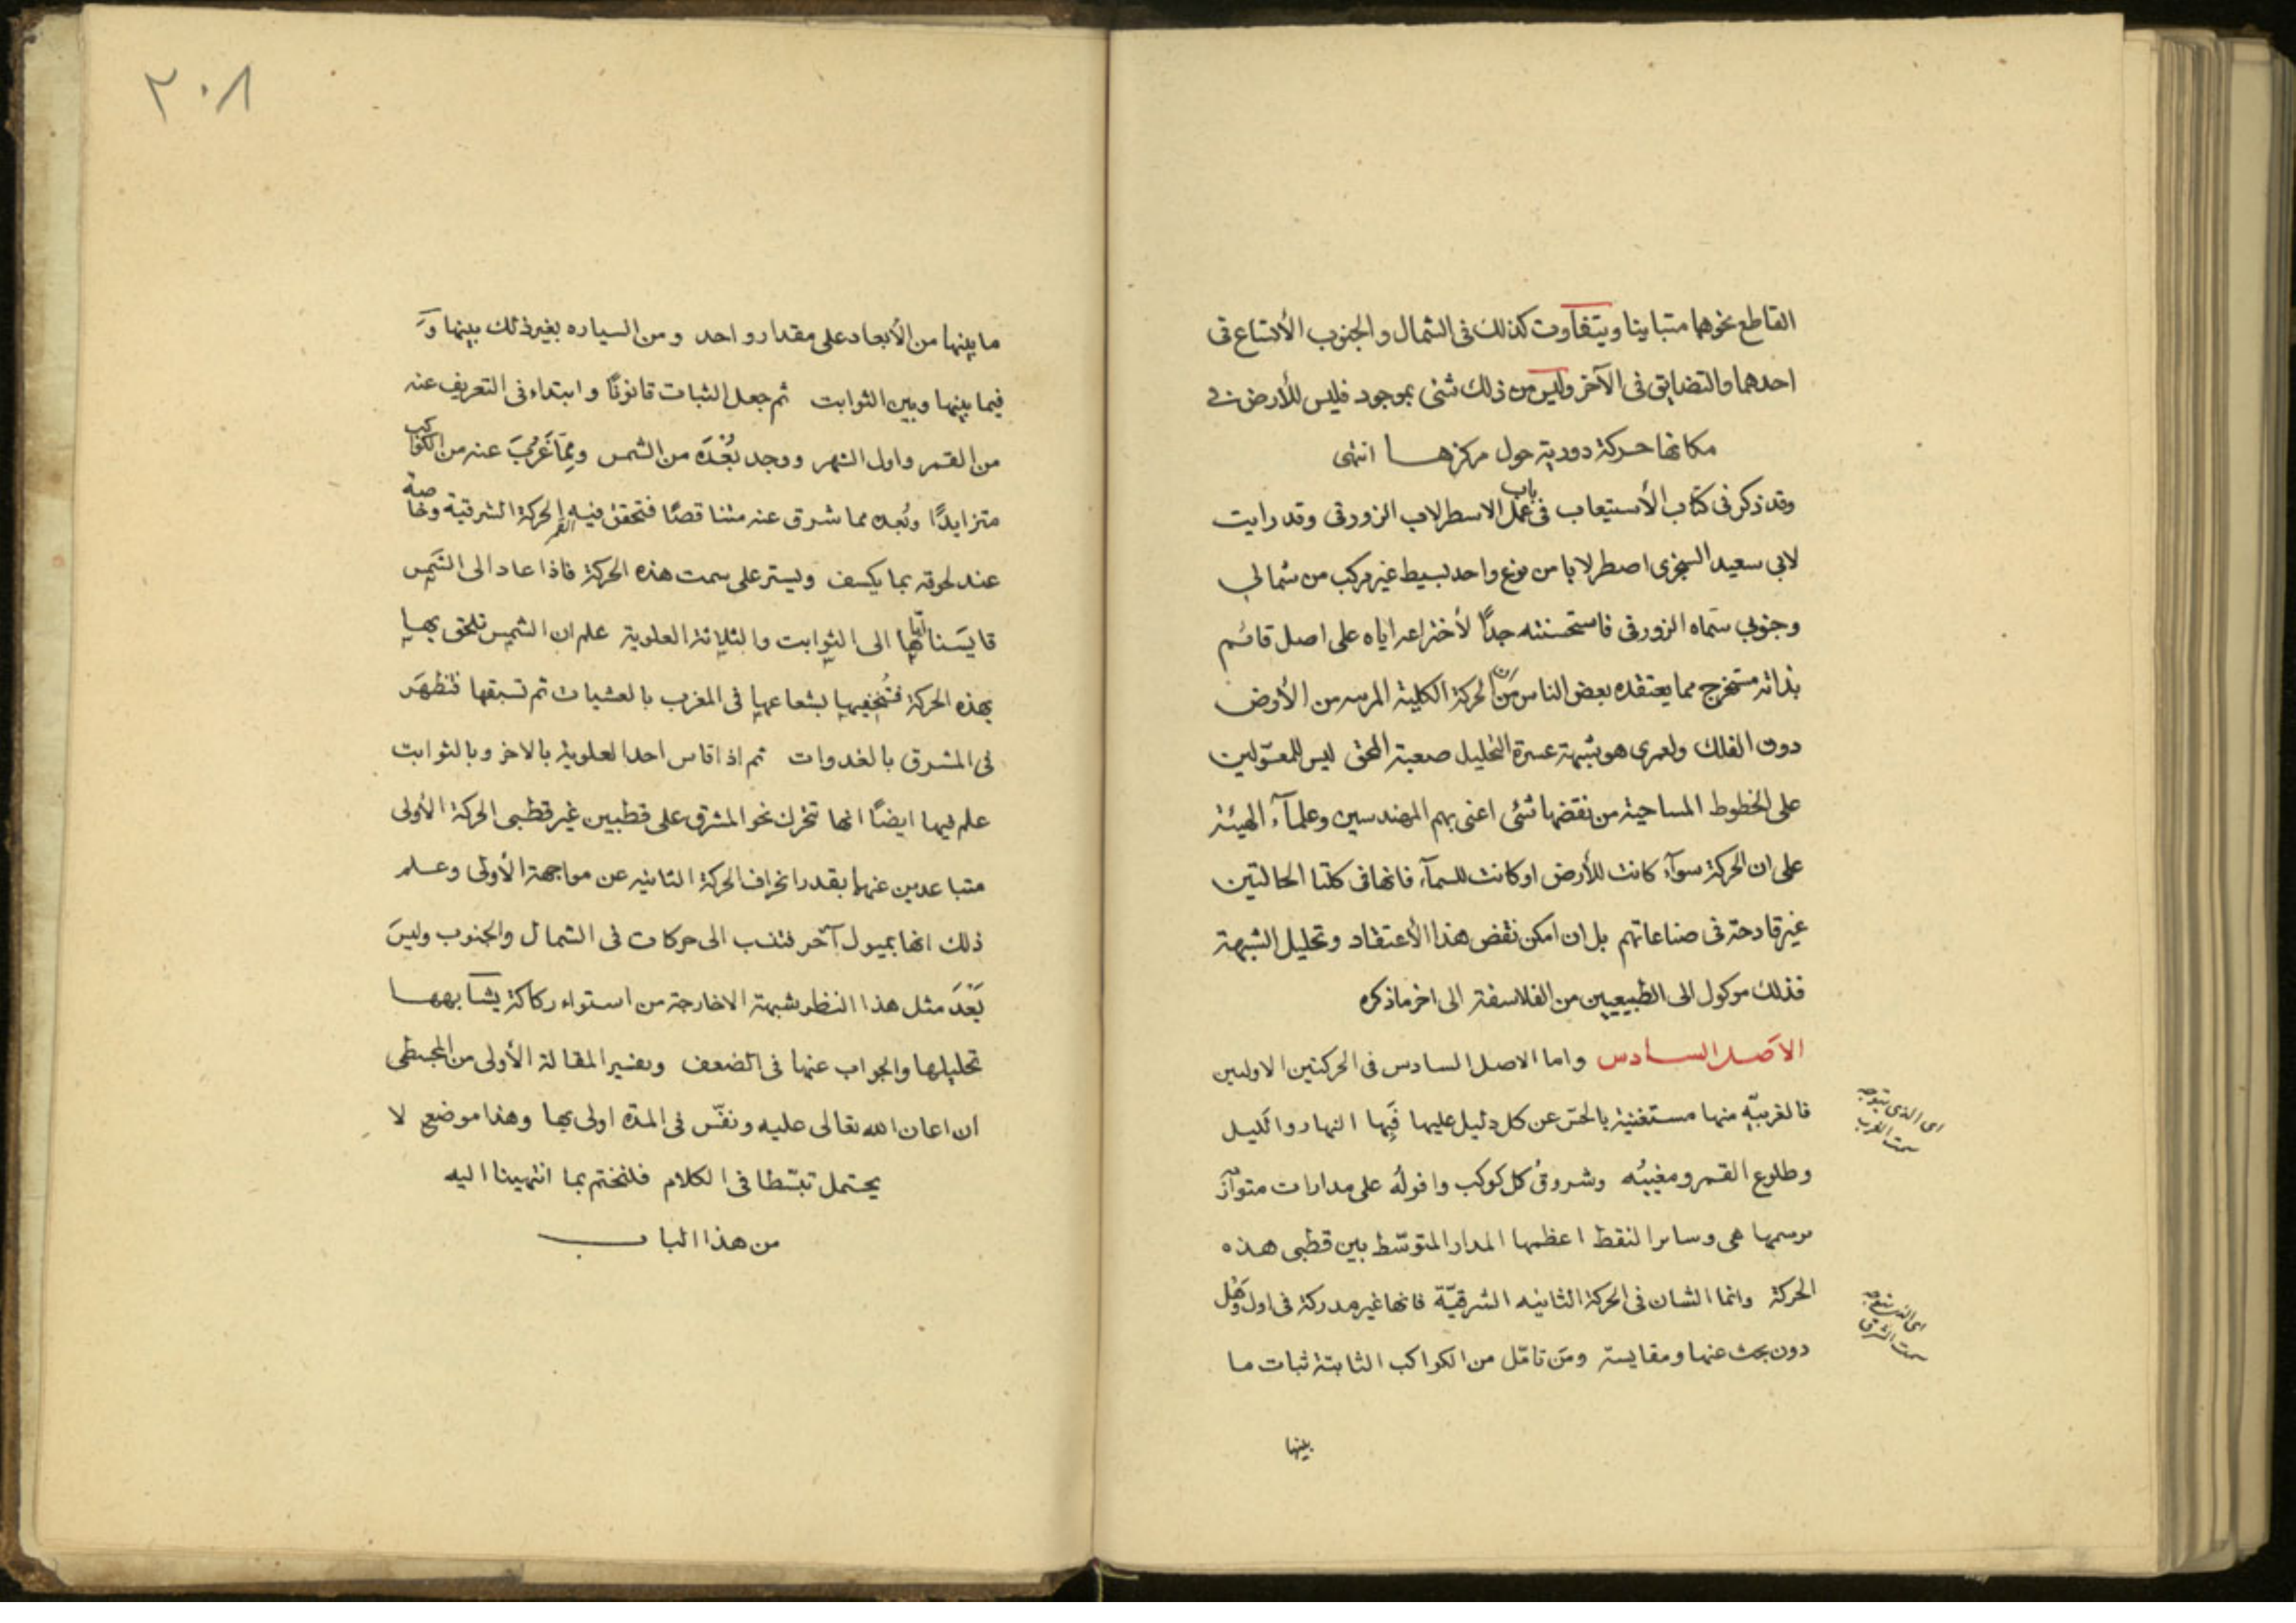 القاطع نحوهما متباينا ويتفاوت كذلك فى الشمال والجنوب الأتساع فى
احدهما والتضايق فى الآخر وليس من ذلك شئى بموجود فليس للأرض فى
مكانها حركة دورية حول مركزها انتهى
وقد ذكر فى كتاب الأستيعاب فى باب عمل الاسطرلاب الزورقى وقد رايت
لابى سعيد السجزى اصطرلابا من نوع واحد بسيط غير مركب من شمالى
وجنوبى سماه الزورقى فاستحسنته جداً لأختراعه اياه على اصل قائم
بذاته مستخرج مما يعتقده بعض الناس من ان الحركة الكلية المرىيه من الأرض
دون الفلك ولعمرى هو شبهة عسرة التحليل صعبة المحق ليس للمعوّلين
على الخطوط المساحية من نقضها شئى اعنى بهم المهندسين وعلمآء الهيئة
على ان الحركة سوآء كانت للأرض او كانت للسمآء فانها فى كلتا الحالتين
غير قادحة فى صناعاتهم بل ان امكن نقض هذا الأعتقاد وتحليل الشبهة
فذلك موكول الى الطبيعيين من الفلاسفة الى اخر ما ذكره
الاصل السادس واما الاصل السادس فى الحركتين الاوليين
فالغربيّه منها مستغنية بالحسّ عن كل دليل عليها فبها النهار والليل
اى الذى يتوجه
سمت الغرب
وطلوع القمر ومغيبُه وشروقُ كل كوكب وافولُه على مدارات متوآز
مرسمها هى وساىر النقط اعظمها المدار المتوسّط بين قطبى هذه
الحركة وانما الشان فى الحركة الثانيه الشرقيّة فانها غير مدركة فى اول وَهْل
اى الذى يتوجه
سمت الشرق
دون بحث عنها ومقايسة ومن تامّل من الكواكب الثابتة ثبات ما
بينها
٢٠٨
ما بينها من الأبعاد على مقدار واحد ومن السياره بغير ذلك بينها وَ
فيما بينها وبين الثوابت ثم جعل الثبات قانونًا وابتداء فى التعريف عنه
من القمر واول الشهر ووجد بُعْدَه من الشمس ومِمّا غَرُبَ عنه من الكواكب
متزايدًا وبُعده مما شرق عنه متناقصًا فتحقق فيه القمر الحركة الشرقية وخاصة
عند لحوقه بما يكسف ويستر على سمت هذه الحركة فاذا عاد الى الشمس
قايسَنا اياها الى الثوابت والثلاثة العلوية علم ان الشمس تلحق بها
بهذه الحركة فتُخفيها بشعاعها فى المغرب بالعشيات ثم تسبقها فتظهَر
فى المشرق بالغدوات ثم اذا قاس احد العلوية بالاخر وبالثوابت
علم فيها ايضًا انها تتحرك نحو المشرق على قطبين غير قطبى الحركة الأولى
متباعدين عنهما بقدر انحراف الحركة الثانيه عن مواجهة الأولى وعلم
ذلك انها بميول آخر فتنسب الى حركات فى الشمال والجنوب وليسَ
بَعْدَ مثل هذا النظر شبهة الا خارجة من استواء ركاكة يشابهها
تحليلها والجواب عنها فى الضعف وتفسير المقالة الأولى من المجسطى
ان اعان الله تعالى عليه ونفّس فى المدّة اولى بها وهذا موضع لا
يحتمل تبسّطا فى الكلام فلنختم بما انتهينا اليه
من هذا الباب